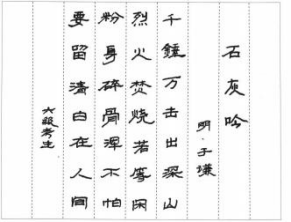 石灰吟
明·于谦
千锤万击出深山
烈火焚烧若等闲
粉身碎骨浑不怕
要留清白在人间
六级考生